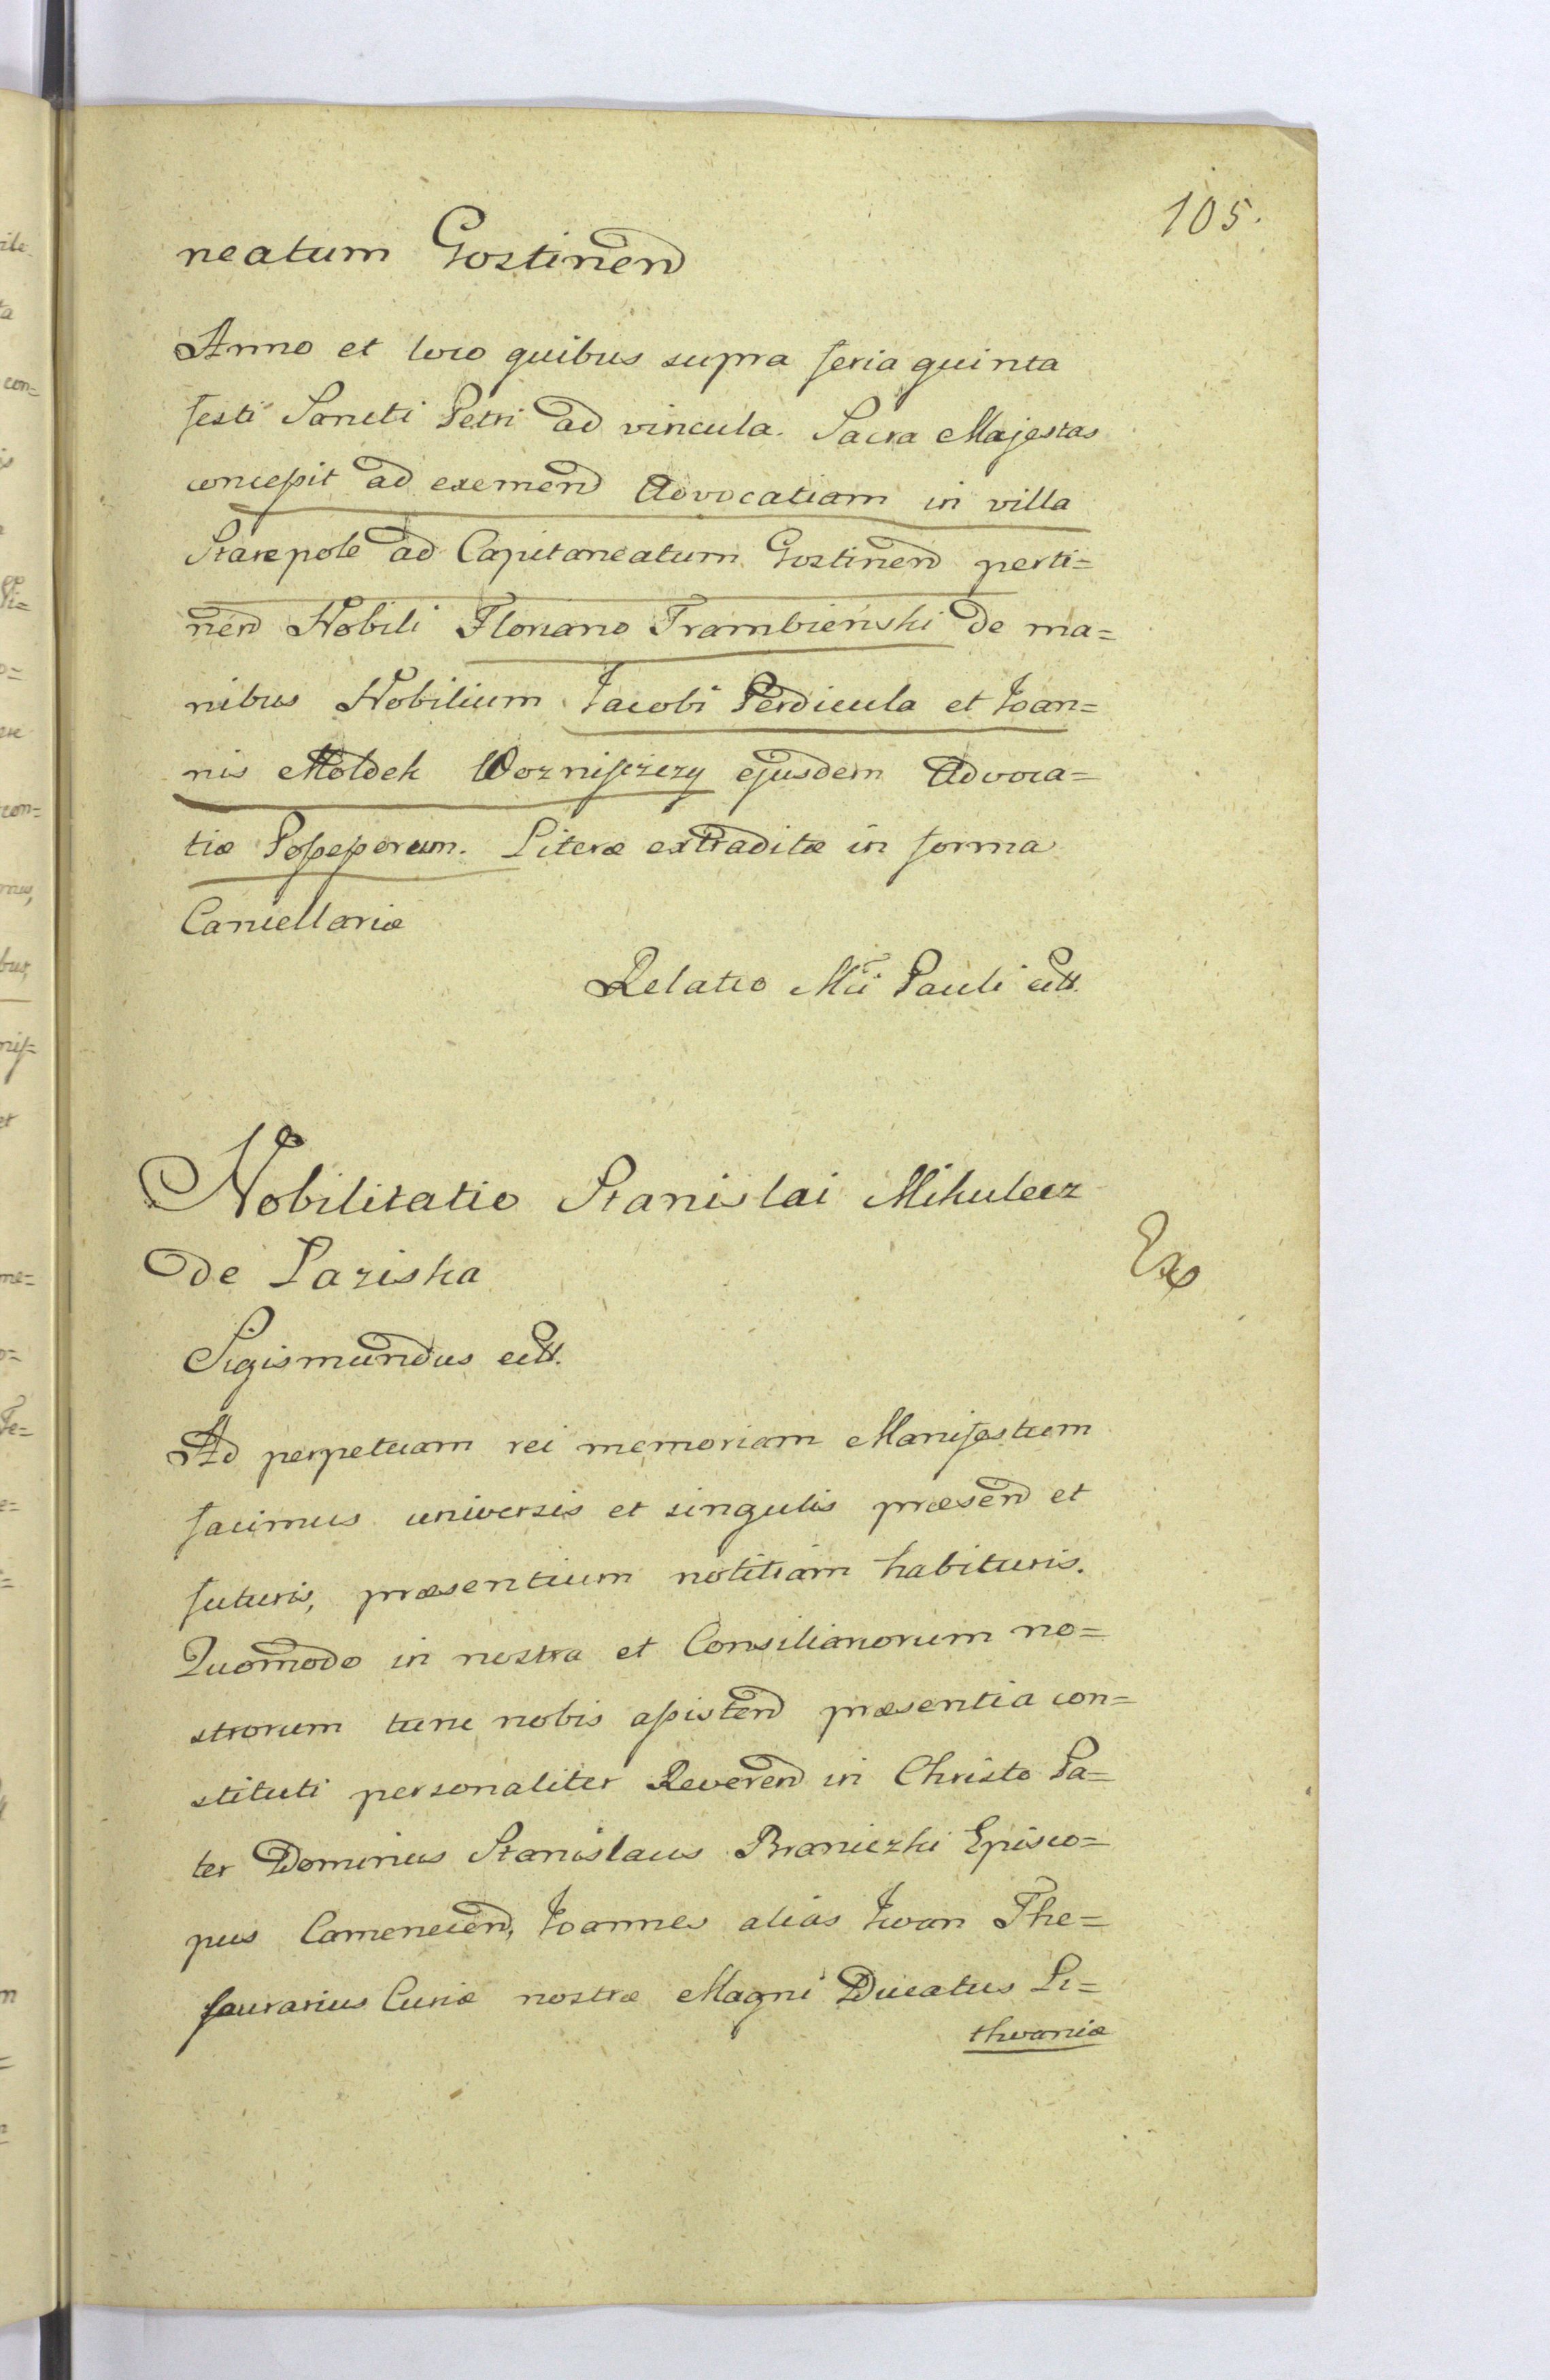 105.
neatum Gostinen̄d
Anno et loco quibus supra feria quinta
festi Sancti Petri ad vincula. Sacra Majestas
concessit ad exemen̄d Advocatiam in villa
Starepole ad Capitaneatum Gostinen̄d perti=
nen̄d Nobili Floriano Trambieński de ma=
nibus Nobilium Jacobi Perdicula et Joan=
nis Moldek Woznisczizy ejusdem Advoca=
tiæ Possessorum. Literæ extraditæ in forma
Cancellariæ
Relatio Mci Pauli ett.
Nobilitatio Stanislai Mikulecz
de Laziska
Ex
Sigismundus ett.
Ad perpetuam rei memoriam Manifestum
facimus universis et singulis præsen̄d et
futuris, præsentium notitiam habituris.
Quomodo in nostra et Consiliariorum no=
strorum tunc nobis assisten̄d præsentia con=
stituti personaliter Reveren̄d in Christo Pa=
ter Dominus Stanislaus Braniczki Episco=
pus Camenecen̄d, Joannes alias Iwan The=
saurarius Curiæ nostræ Magni Ducatus Li=
thvaniæ